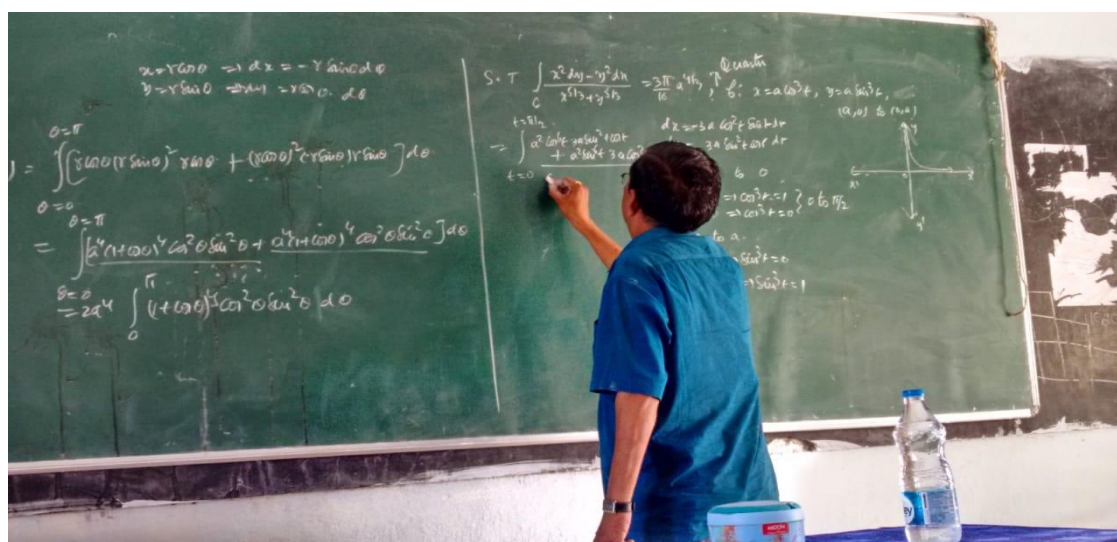 x = r cosθ ⇒ dx = - r sinθ dθ
y = r sinθ ⇒ dy = r cosθ. dθ
θ=π
= ∫[r cosθ (r sinθ)² r cosθ + (r cosθ)² (r sinθ) r sinθ] dθ
θ=0
θ=π
= ∫[a⁴(1+cosθ)⁴ cos²θ sin²θ + a⁴(1+cosθ)⁴ cos²θ sin²θ] dθ
θ=0
π
= 2a⁴ ∫ (1+cosθ)⁴ cos²θ sin²θ dθ
0
S.T ∫ x² dy - y² dx / x^5/3 + y^5/3 = 3π/16 a^4/3,
C
x = a cos³t, y = a sin³t,
(a,0) to (0,a)
t=π/2
dx = -3a cos²t sint dt
= ∫ a² cos⁶t 3a sin²t cost
3a sin²t cost dt
+ a² sin⁶t 3a cos²
t=0
to 0
⇒ cos³t = 1
⇒ cos³t = 0 } 0 to π/2
to a.
sin³t = 0
⇒ sin³t = 1
y
x' 0 x
y'